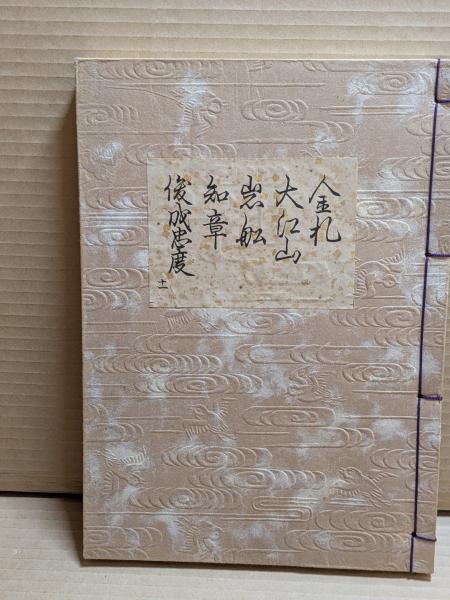 金札
大江山
岩舩
知章
俊成忠度
十一